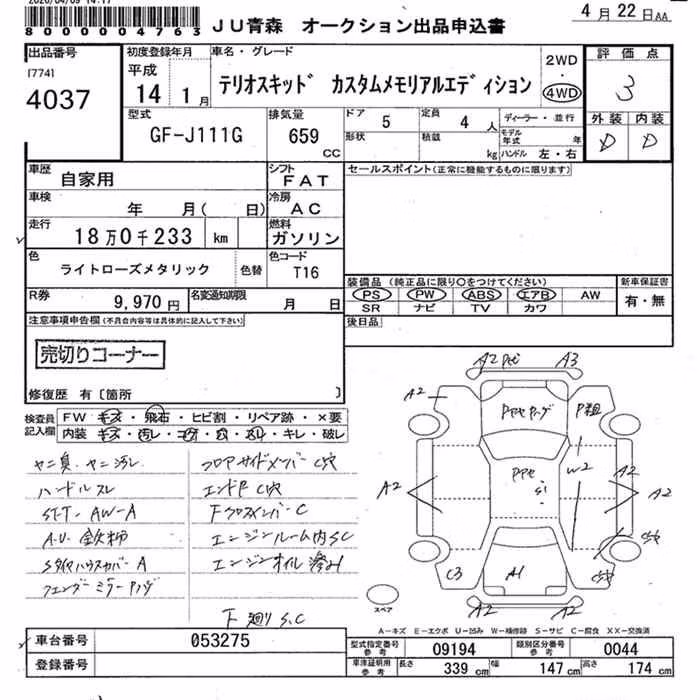 2020/04/09 14:17
8000004763
JU青森 オークション出品申込書
4月22日AA
出品番号
[774]
4037
初度登録年月
平成
14 1月
車名・グレード
テリオスキッド カスタムメモリアルエディション
2WD
・
4WD
評価点
3
外装 内装
D D
型式
GF-J111G
排気量
659
CC
ドア
5
定員
4人
形状
積載
kg
ディーラー・並行
モデル年式 年
ハンドル 左・右
車歴
自家用
シフト
FAT
車検
年 月( 日)
冷房
AC
走行
18万0千233 km
燃料
ガソリン
色
ライトローズメタリック
色替
色コード
T16
R券
9,970円
名変通知期限
月 日
セールスポイント(正常に機能するものに限ります)
装備品 (純正品に限り○をつけてください)
PS PW ABS エアB AW
SR ナビ TV カワ
新車保証書
有・無
後日品
注意事項申告欄(不具合内容等は具体的に記入して下さい)
売切りコーナー
修復歴 有〔箇所 〕
検査員記入欄
FW キズ・飛石・ヒビ割・リペア跡・×要
内装 キズ・汚レ・コゲ・穴・スレ・キレ・破レ
ヤニ臭・ヤニ汚レ
ハンドルスレ
AW-A
フロアサイドメンバーC穴
エンドP C穴
FクロスメンバーC
エンジンルーム内SC
エンジンオイル滲み
フェンダーミラー
下廻りS.C
A2 A3
A2
A2
A2
W2
A2
A2
S1
C3
A1
A2 A2
スペア
A-キズ E-エクボ U-凹み W-補修跡 S-サビ C-腐食 XX-交換済
車台番号
053275
登録番号
型式指定番号参考
09194
類別区分番号参考
0044
車庫証明用参考
長さ 339 cm
幅 147 cm
高さ 174 cm